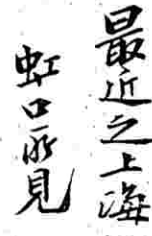 最近之上海
虹口所見